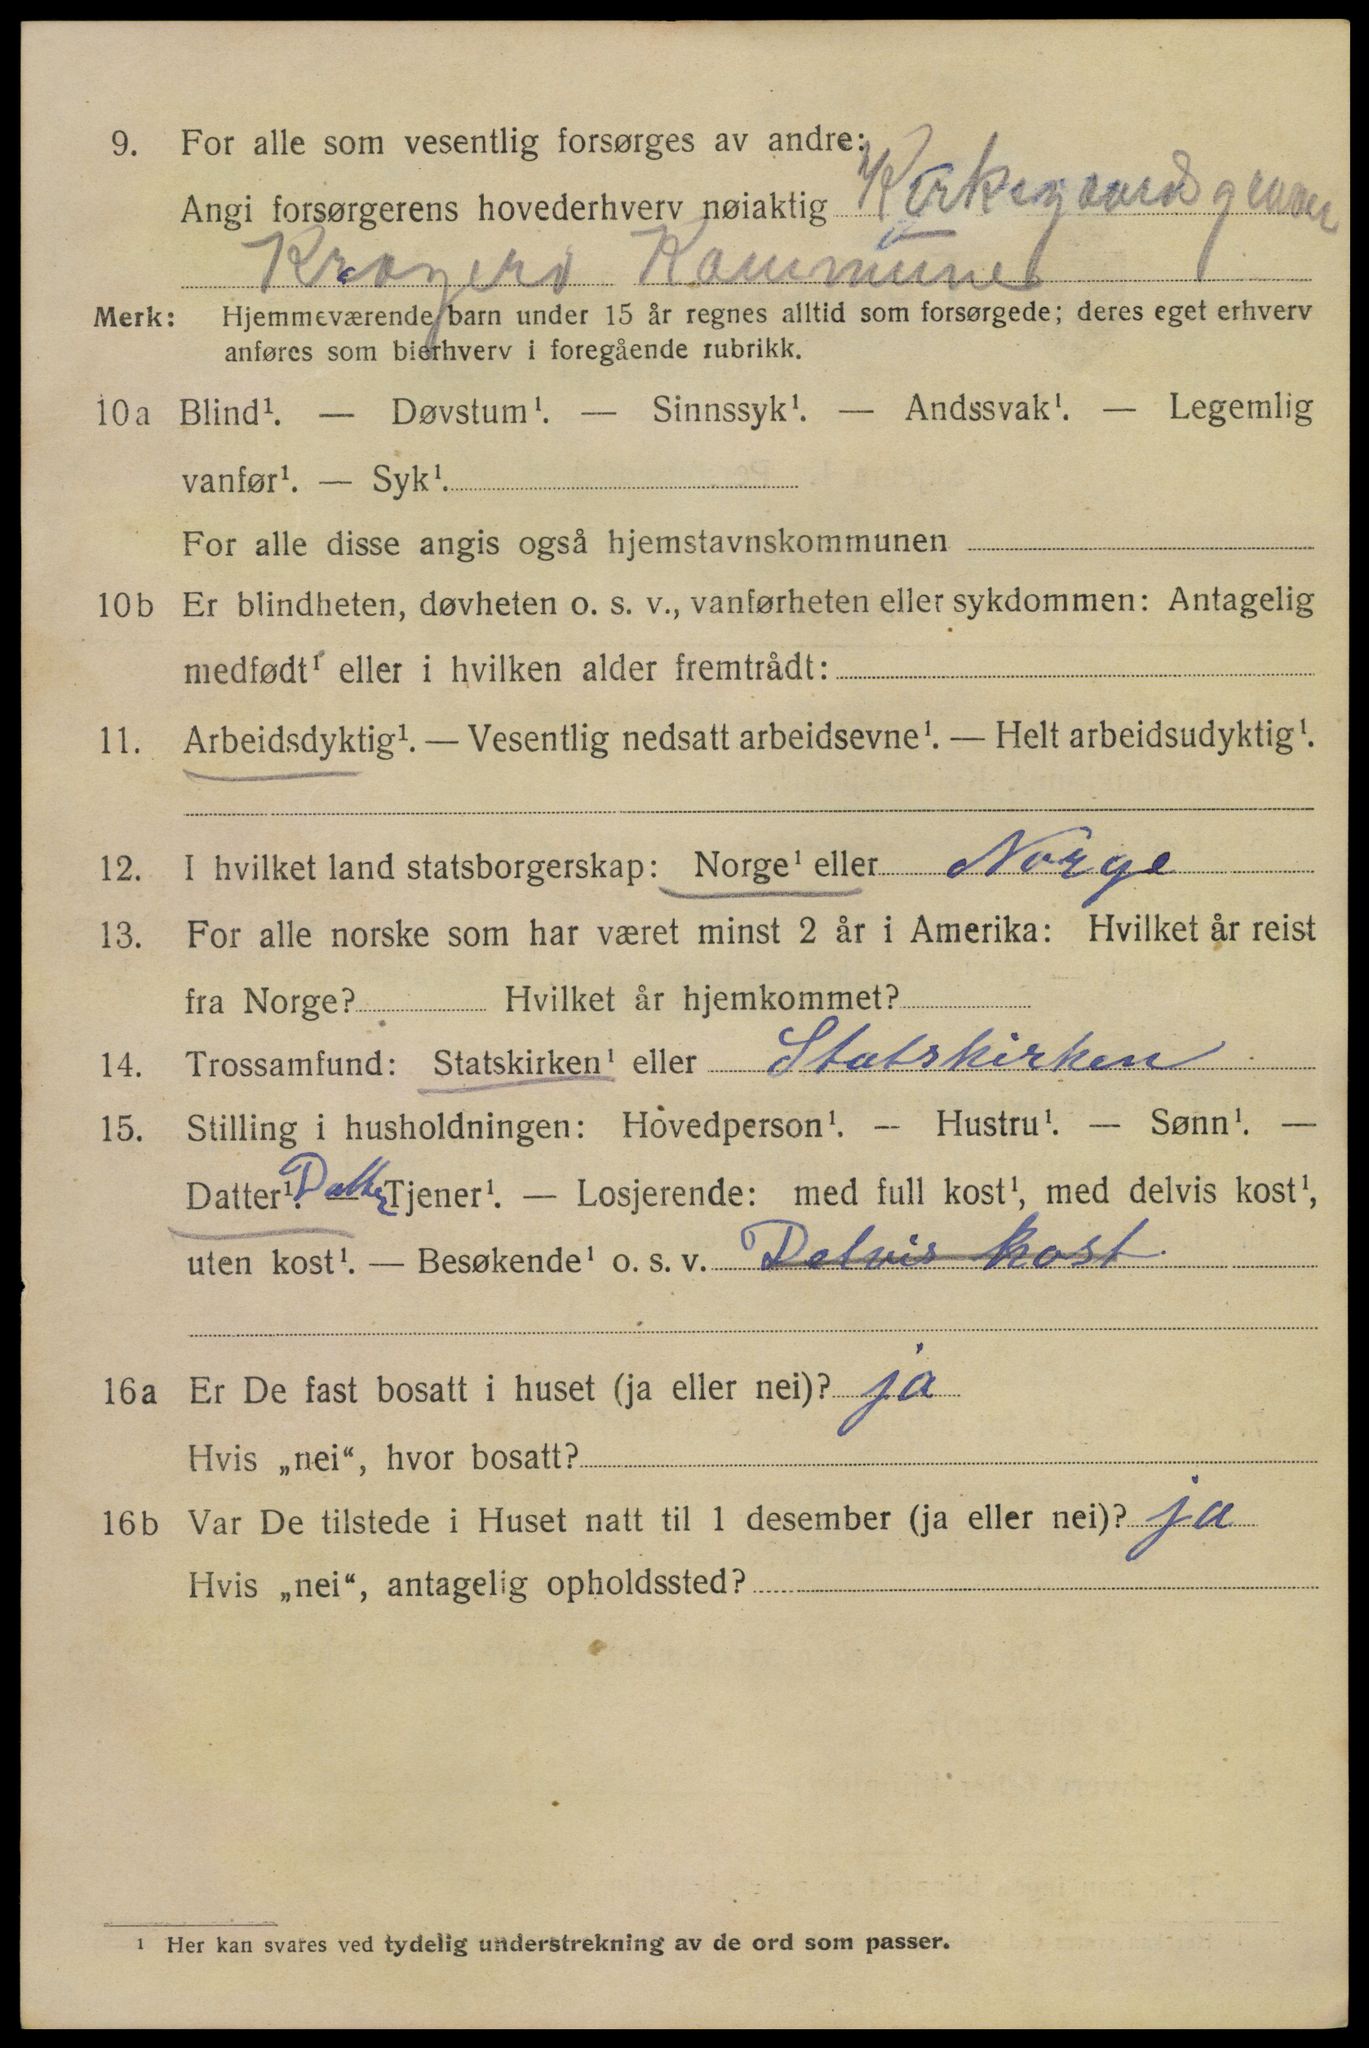 9. For alle som vesentlig forsørges av andre:
Angi forsørgerens hovederhverv nøiaktig Kirkegaardsgraver
Kragerø Kommune
Merk: Hjemmeværende barn under 15 år regnes alltid som forsørgede; deres eget erhverv
anføres som bierhverv i foregående rubrikk.
10a Blind¹. — Døvstum¹. — Sinnssyk¹. — Andssvak¹. — Legemlig
vanfør¹. — Syk¹.
For alle disse angis også hjemstavnskommunen
10b Er blindheten, døvheten o. s. v., vanførheten eller sykdommen: Antagelig
medfødt¹ eller i hvilken alder fremtrådt:
11. Arbeidsdyktig¹. — Vesentlig nedsatt arbeidsevne¹. — Helt arbeidsudyktig¹.
12. I hvilket land statsborgerskap: Norge¹ eller Norge
13. For alle norske som har været minst 2 år i Amerika: Hvilket år reist
fra Norge? Hvilket år hjemkommet?
14. Trossamfund: Statskirken¹ eller Statskirken
15. Stilling i husholdningen: Hovedperson¹. — Hustru¹. — Sønn¹. —
Datter¹. Datter Tjener¹. — Losjerende: med full kost¹, med delvis kost¹,
uten kost¹. — Besøkende¹ o. s. v. Delvis kost
16a Er De fast bosatt i huset (ja eller nei)? ja
Hvis „nei“, hvor bosatt?
16b Var De tilstede i Huset natt til 1 desember (ja eller nei)? ja
Hvis „nei“, antagelig opholdssted?
¹ Her kan svares ved tydelig understrekning av de ord som passer.